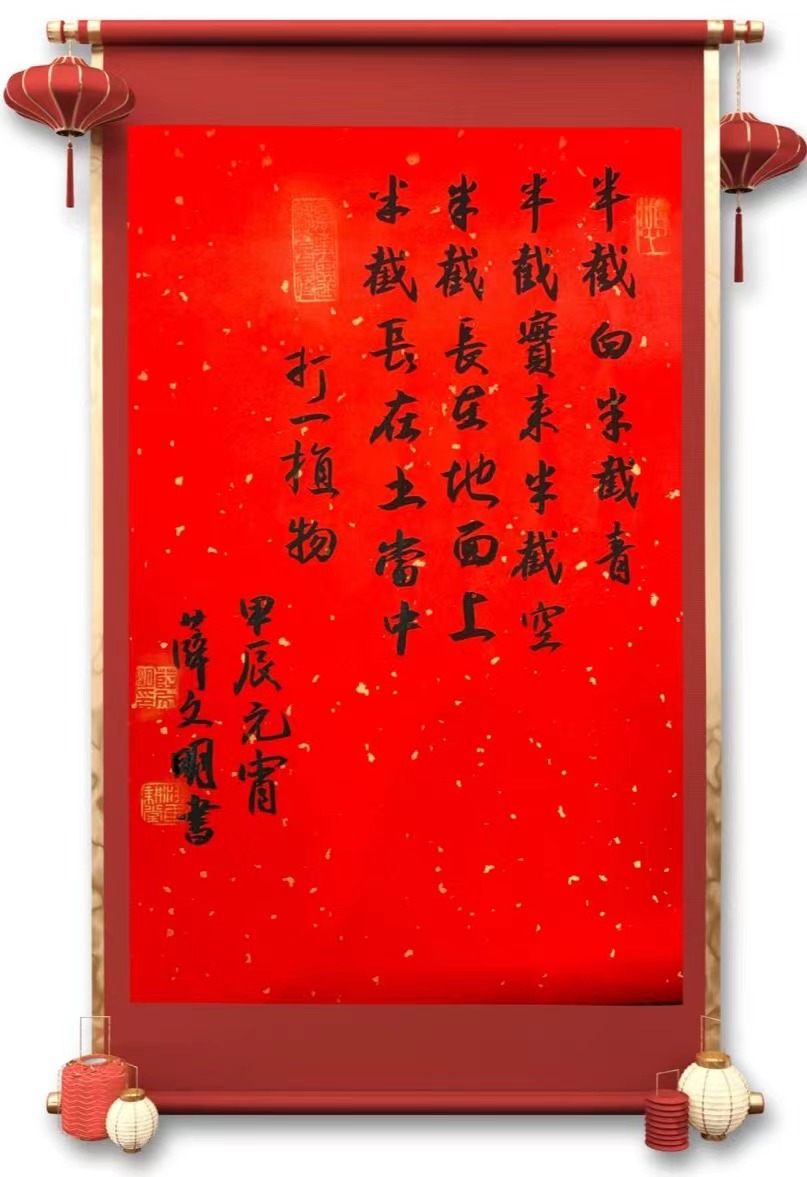 半截白半截青
半截實來半截空
半截長在地面上
半截長在土當中
打一植物
甲辰元宵
薛文明書